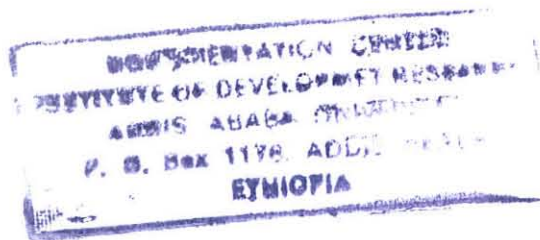 DOCUMENTATION CENTER
INSTITUTE OF DEVELOPMENT RESEARCH
ADDIS ABABA
P. O. Box 1176, ADDIS
ETHIOPIA